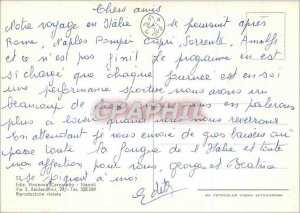 Chers amis
Notre voyage en Italie se poursuit après
Rome, Naples Pompei Capri, Sorrente, Amalfi
et ce n'est pas fini! Le programme en est
si chargé que chaque journée est en soi
une performance sportive nous avons vu
beaucoup de nous en parlerons
plus à quand nous nous reverrons.
En attendant je vous envoie de gros baisers au
passe toute la fougue de l'Italie et toute
mon affection pour vous, Georges et Béatrice
se joignent à moi
Edith
Ediz. Vincenzo Carcavallo - Napoli
Via S. Bartolomeo, 36 - Tel. 328.069
Riproduzione vietata
DA FOTOCOLOR KODAK EKTACHROME
CPAPHIL